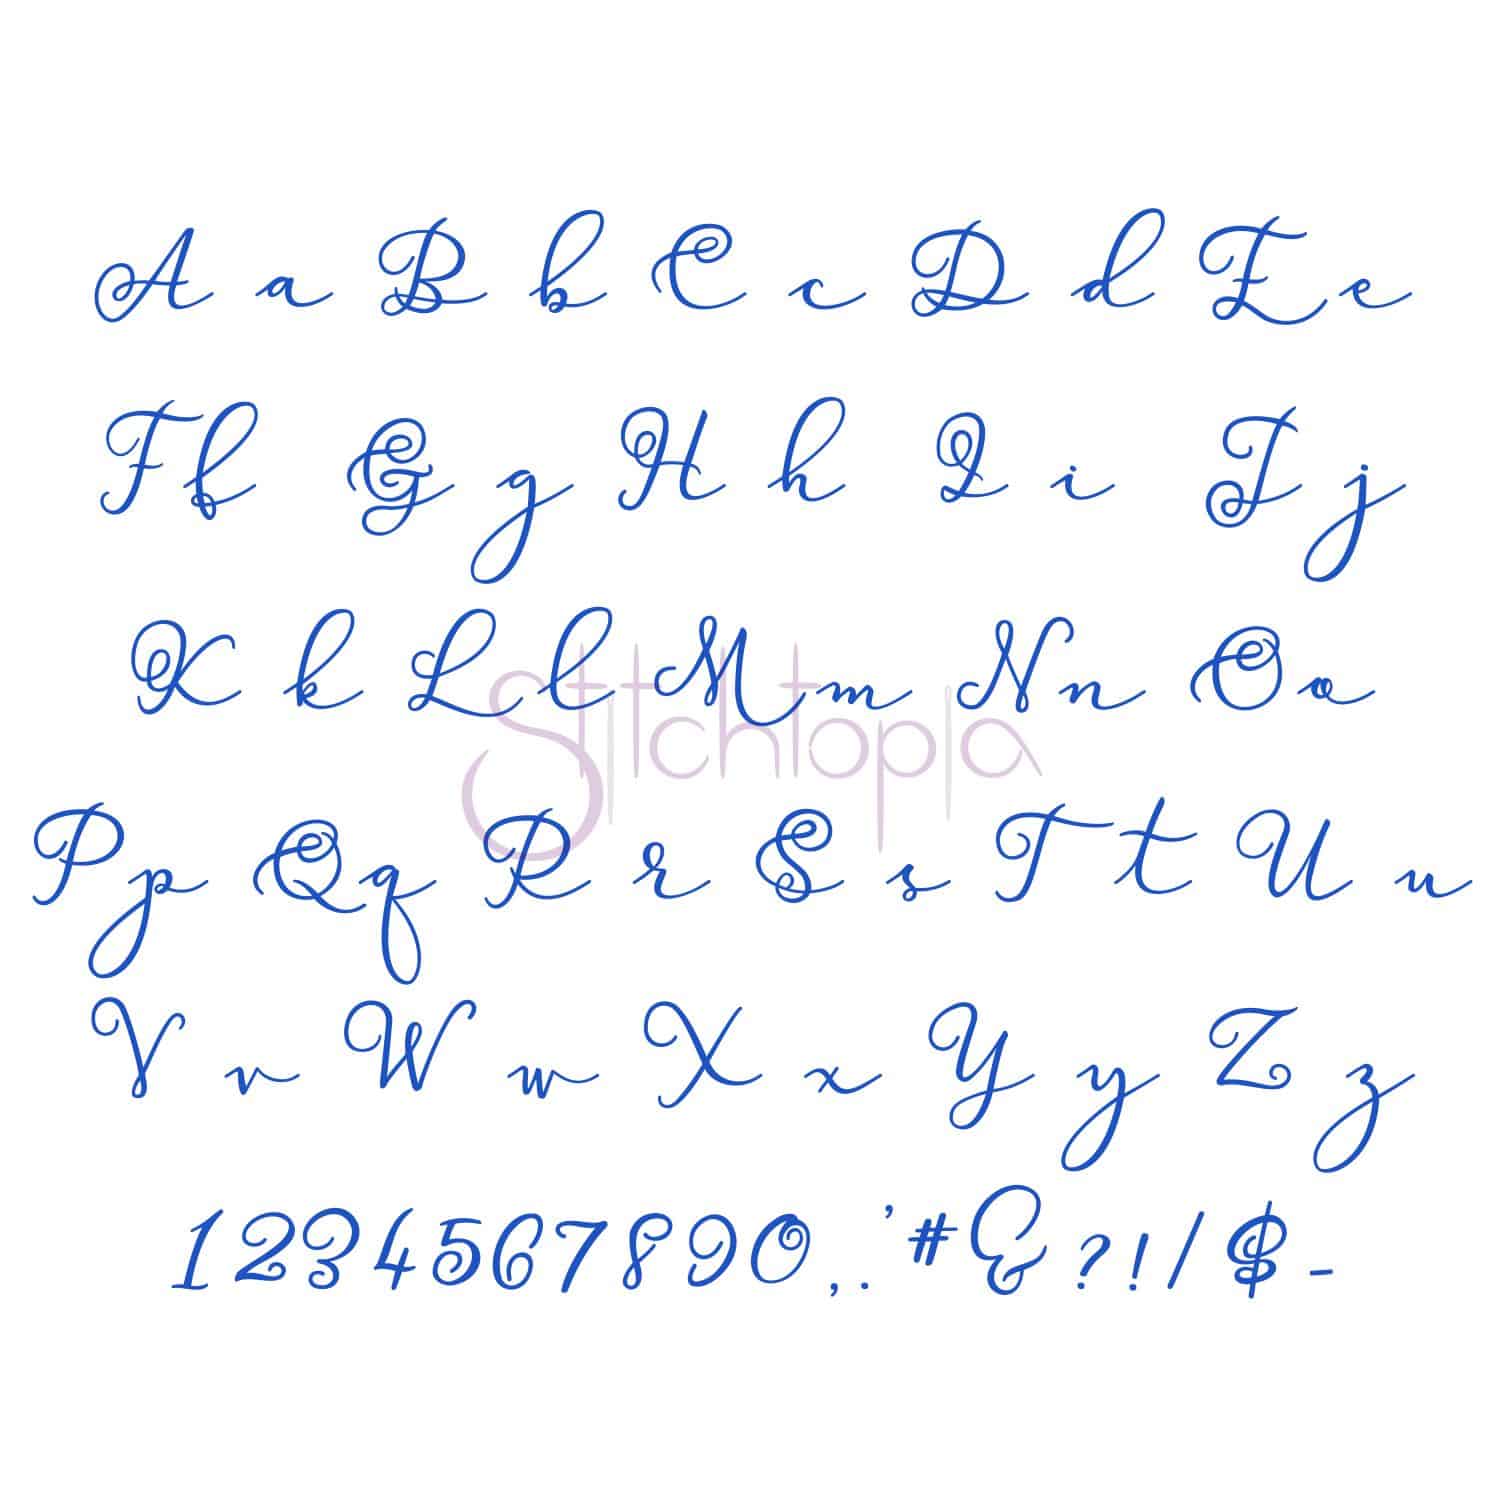 A a B b C c D d E e
F f G g H h I i J j
K k L l M m N n O o
Stitchtopia
P p Q q R r S s T t U u
V v W w X x Y y Z z
1 2 3 4 5 6 7 8 9 0 , . ' # & ? ! / $ -